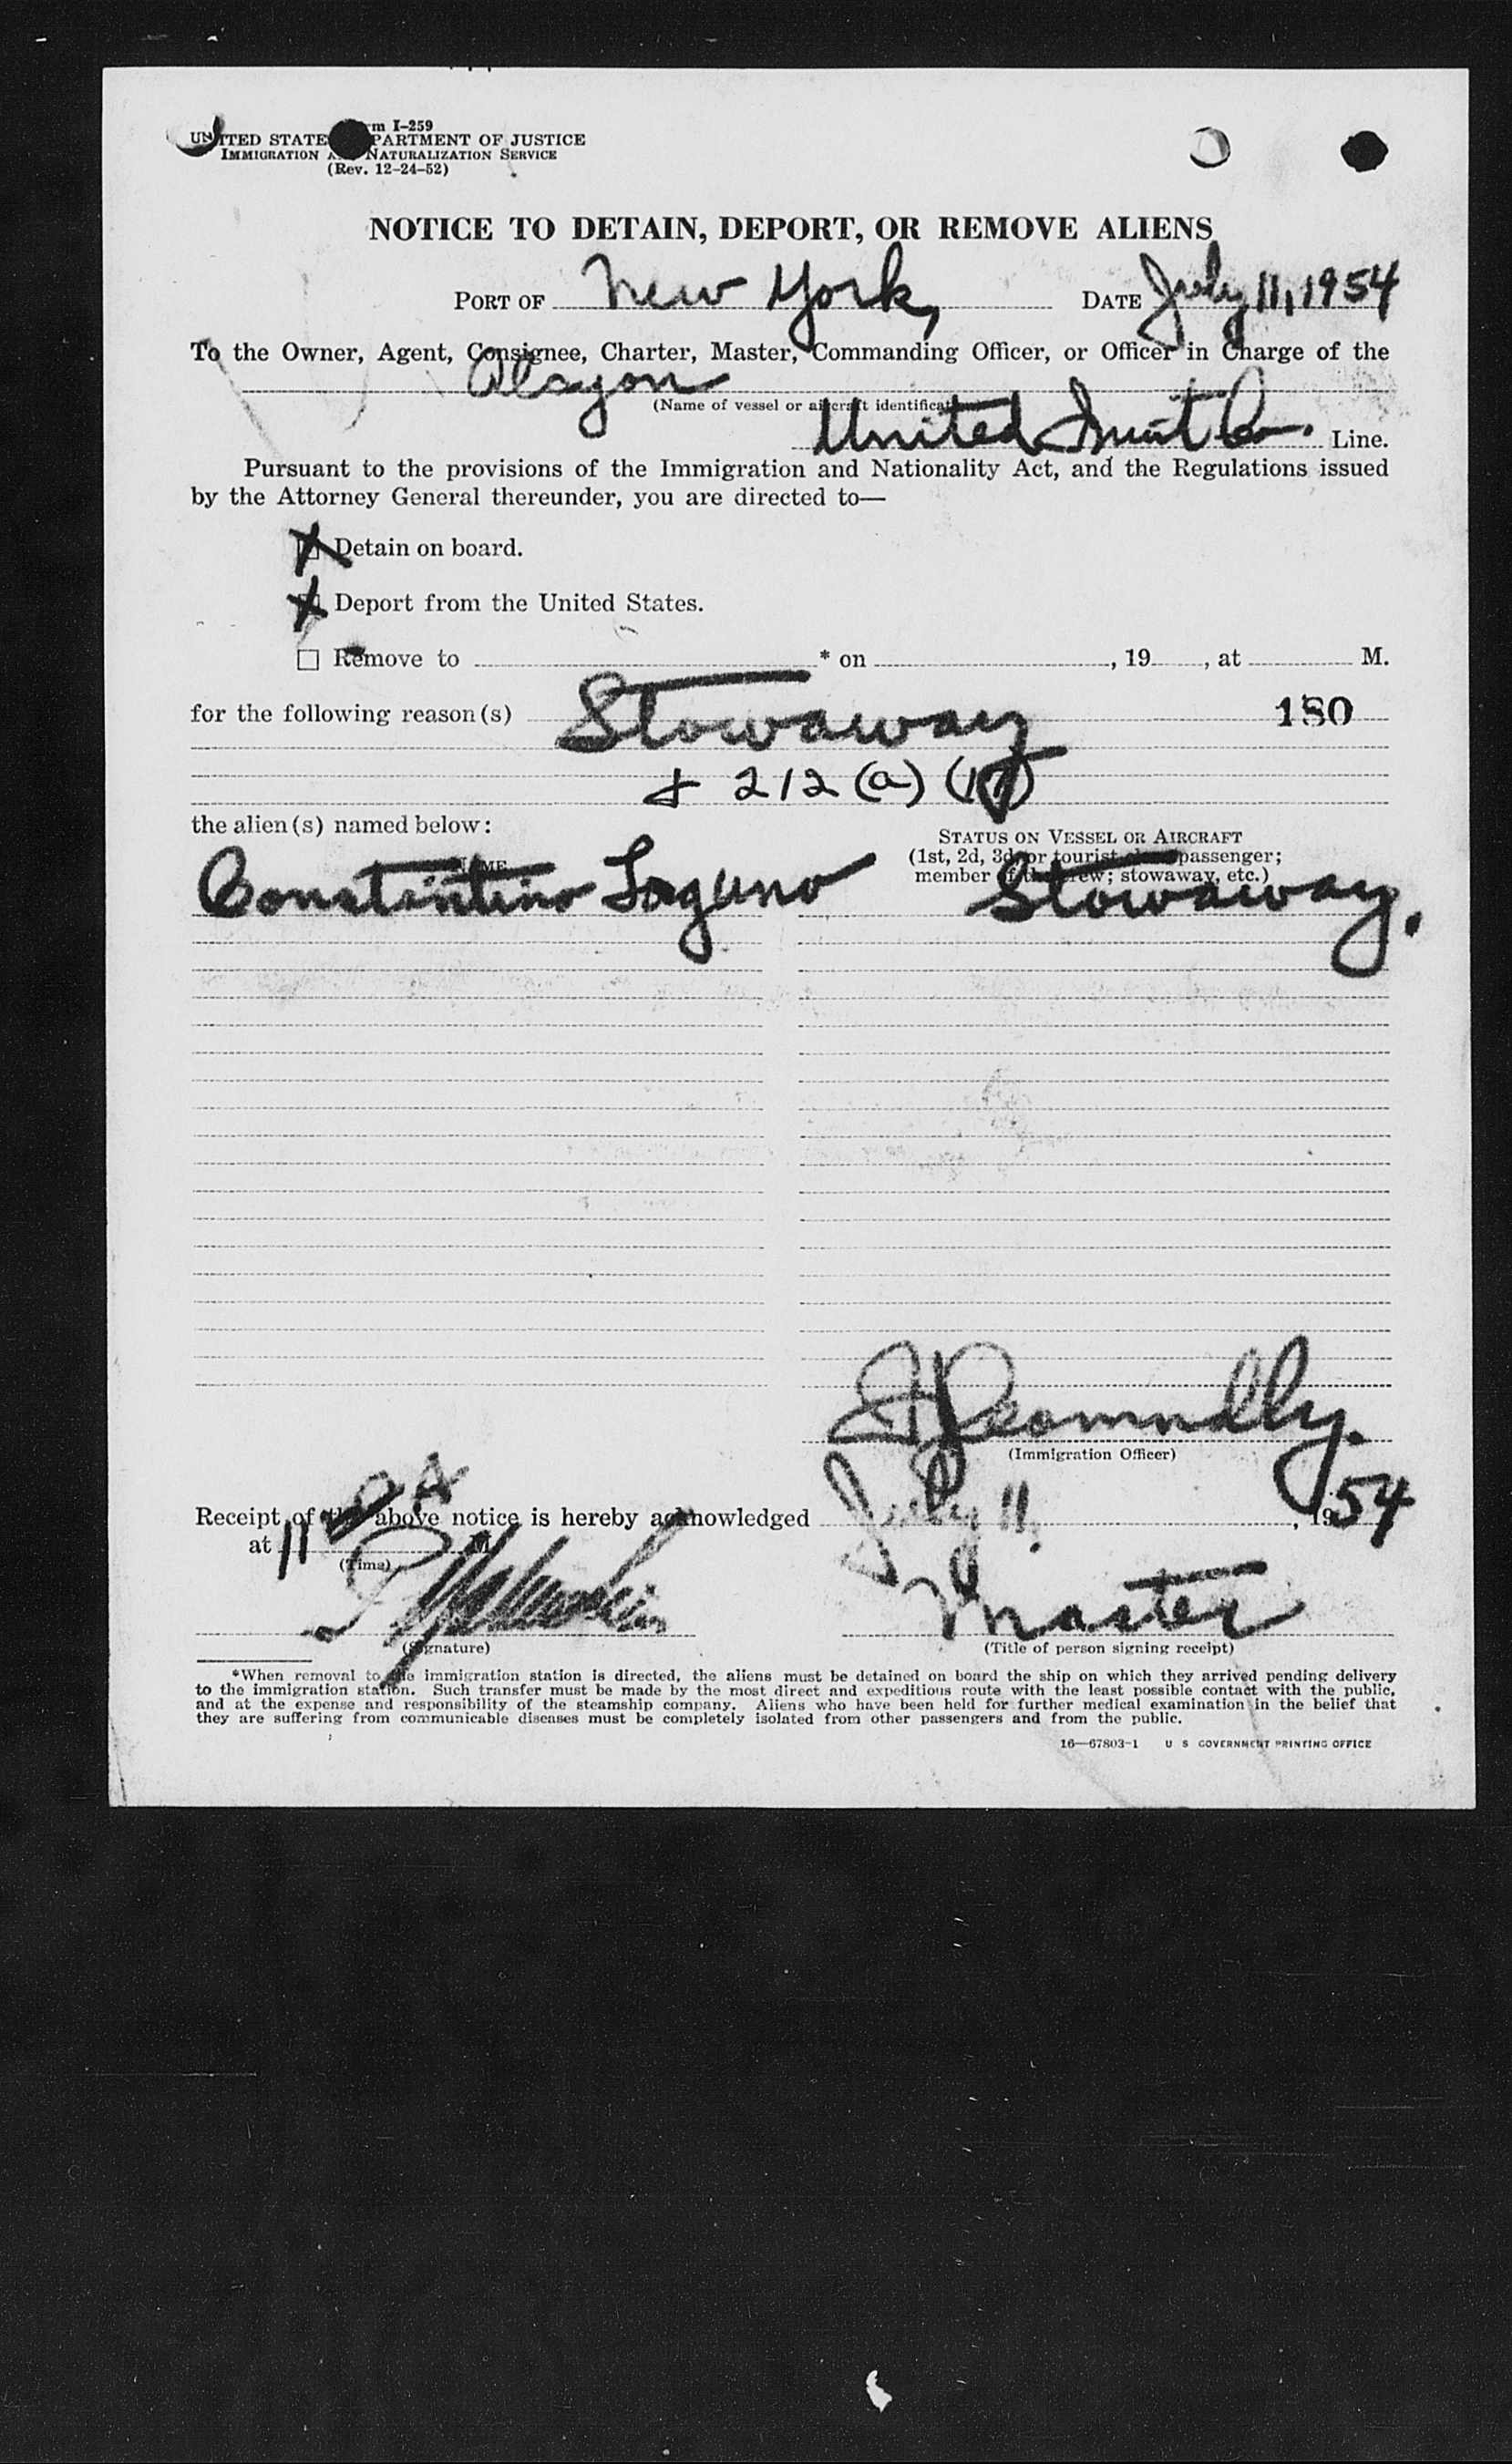 Form I-259
UNITED STATES DEPARTMENT OF JUSTICE
IMMIGRATION AND NATURALIZATION SERVICE
(Rev. 12-24-52)
NOTICE TO DETAIN, DEPORT, OR REMOVE ALIENS
PORT OF New York, DATE July 11, 1954
To the Owner, Agent, Consignee, Charter, Master, Commanding Officer, or Officer in Charge of the
(Name of vessel or aircraft identification)
United Fruit Co. Line.
Pursuant to the provisions of the Immigration and Nationality Act, and the Regulations issued
by the Attorney General thereunder, you are directed to—
X Detain on board.
X Deport from the United States.
☐ Remove to * on , 19 , at M.
for the following reason(s) Stowaway 180
& 212 (a) (17)
the alien(s) named below:
STATUS ON VESSEL OR AIRCRAFT
NAME (1st, 2d, 3d, or tourist class passenger;
member of the crew; stowaway, etc.)
Constantino Laguno Stowaway.
(Immigration Officer)
Receipt of the above notice is hereby acknowledged July 11, 1954
at 11 00 A M.
(Time)
Master
(Signature) (Title of person signing receipt)
*When removal to the immigration station is directed, the aliens must be detained on board the ship on which they arrived pending delivery
to the immigration station. Such transfer must be made by the most direct and expeditious route with the least possible contact with the public,
and at the expense and responsibility of the steamship company. Aliens who have been held for further medical examination in the belief that
they are suffering from communicable diseases must be completely isolated from other passengers and from the public.
16—67803-1 U S GOVERNMENT PRINTING OFFICE